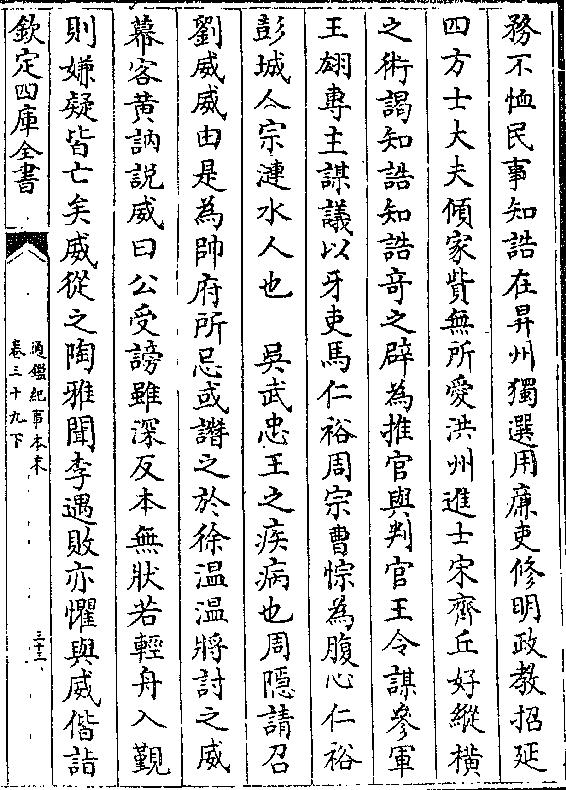 務不恤民事知誥在昇州獨選用廉吏修明政教招延
四方士大夫傾家貲無所愛洪州進士宋齊丘好縱橫
之術謁知誥知誥竒之辟為推官與判官王令謀參軍
王翃專主謀議以牙吏馬仁裕周宗曹悰為腹心仁裕
彭城人宗漣水人也　吳武忠王之疾病也周隠請召
劉威威由是為帥府所忌或譖之於徐温温將討之威
幕客黃訥説威曰公受謗雖深反本無狀若輕舟入覲
則嫌疑皆亡矣威從之陶雅聞李遇敗亦懼與威偕詣
欽定四庫全書
通鑑紀事本末
卷三十九下
三十二